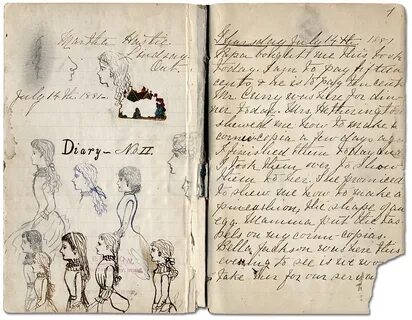 Martha Hastie
Lindsay
Ont.
July 14th 1881.
Diary - No. II.
1
Thursday July 14th 1881.
Papa bought me this book
today. I am to pay fifteen
cents, & he is to pay ten cents
Mr Curry was here for din-
ner today. Mrs Hetherington
showed me how to make a
cornucopia a few days ago
I finished them today and
I took them over to show
them to her. She promised
to show me how to make a
pincushion, the shape of an
egg. Mamma put the tas-
sels on my cornu-copias.
Bella Jackson was here this
evening to see if we would
take her for our servant